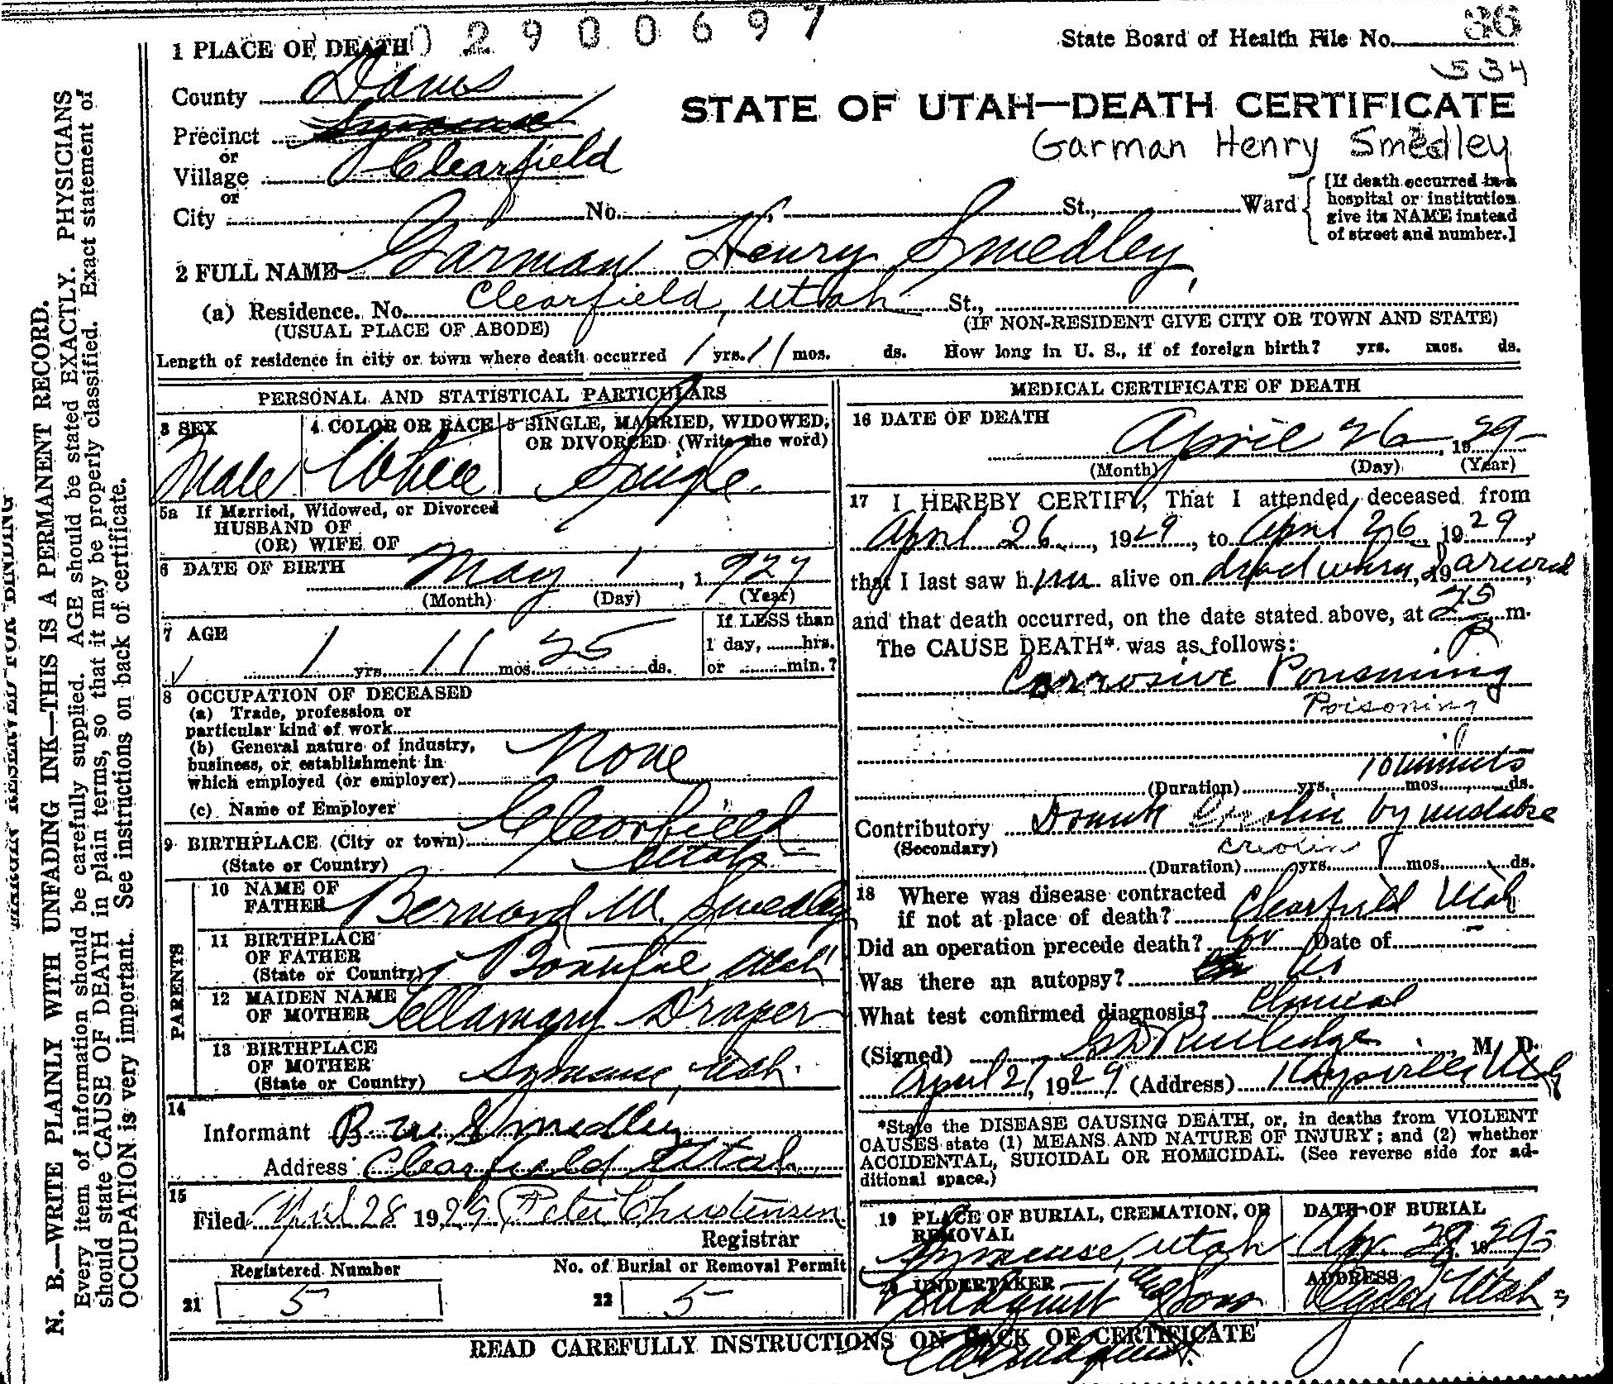 02900697
36
1 PLACE OF DEATH
State Board of Health File No.
534
County Davis
STATE OF UTAH—DEATH CERTIFICATE
Precinct
or
Garman Henry Smedley
Village Clearfield
or
City No. St., Ward
[If death occurred in a
hospital or institution
give its NAME instead
of street and number.]
2 FULL NAME Garman Henry Smedley
(a) Residence. No. Clearfield, Utah St.,
(USUAL PLACE OF ABODE) (IF NON-RESIDENT GIVE CITY OR TOWN AND STATE)
Length of residence in city or town where death occurred 1 yrs. 11 mos. ds. How long in U. S., if of foreign birth? yrs. mos. ds.
PERSONAL AND STATISTICAL PARTICULARS
3 SEX
Male
4 COLOR OR RACE
White
5 SINGLE, MARRIED, WIDOWED,
OR DIVORCED (Write the word)
Single.
5a If Married, Widowed, or Divorced
HUSBAND OF
(OR) WIFE OF
6 DATE OF BIRTH May 1, 1927
(Month) (Day) (Year)
7 AGE
1 yrs. 11 mos. 25 ds.
If LESS than
1 day, hrs.
or min.?
8 OCCUPATION OF DECEASED
(a) Trade, profession or
particular kind of work
(b) General nature of industry,
business, or establishment in
which employed (or employer)
None
(c) Name of Employer
9 BIRTHPLACE (City or town) Clearfield
(State or Country) Utah
PARENTS
10 NAME OF
FATHER Bernard W. Smedley
11 BIRTHPLACE
OF FATHER
(State or Country) Bountiful Utah
12 MAIDEN NAME
OF MOTHER Ellamary Draper
13 BIRTHPLACE
OF MOTHER
(State or Country) Syracuse, Utah.
14
Informant B W Smedley
Address Clearfield Utah
15
Filed April 28 1929 Peter Christensen
Registrar
Registered Number
21 5
No. of Burial or Removal Permit
22 5
MEDICAL CERTIFICATE OF DEATH
16 DATE OF DEATH
April 26, 1929
(Month) (Day) (Year)
17 I HEREBY CERTIFY, That I attended deceased from
April 26, 1929, to April 26, 1929,
that I last saw him alive on dead when I arrived, 19
and that death occurred, on the date stated above, at m.
The CAUSE DEATH* was as follows:
Corrosive Poisoning
Poisoning
10 minutes
(Duration) yrs. mos. ds.
Contributory Drank Creolin by mistake
(Secondary) creolin
(Duration) yrs. mos. ds.
18 Where was disease contracted
if not at place of death? Clearfield Utah
Did an operation precede death? no Date of
Was there an autopsy? no
What test confirmed diagnosis? Clinical
(Signed) G D Rutledge M. D.
April 27, 1929 (Address) Kaysville Utah
*State the DISEASE CAUSING DEATH, or, in deaths from VIOLENT
CAUSES state (1) MEANS AND NATURE OF INJURY; and (2) whether
ACCIDENTAL, SUICIDAL OR HOMICIDAL. (See reverse side for ad-
ditional space.)
19 PLACE OF BURIAL, CREMATION, OR
REMOVAL
Syracuse, Utah
DATE OF BURIAL
Apr. 29, 1929
20 UNDERTAKER
Lindquist and Sons
ADDRESS
Ogden Utah
READ CAREFULLY INSTRUCTIONS ON BACK OF CERTIFICATE
MARGIN RESERVED FOR BINDING
N. B.—WRITE PLAINLY WITH UNFADING INK—THIS IS A PERMANENT RECORD.
Every item of information should be carefully supplied. AGE should be stated EXACTLY. PHYSICIANS
should state CAUSE OF DEATH in plain terms, so that it may be properly classified. Exact statement of
OCCUPATION is very important. See instructions on back of certificate.